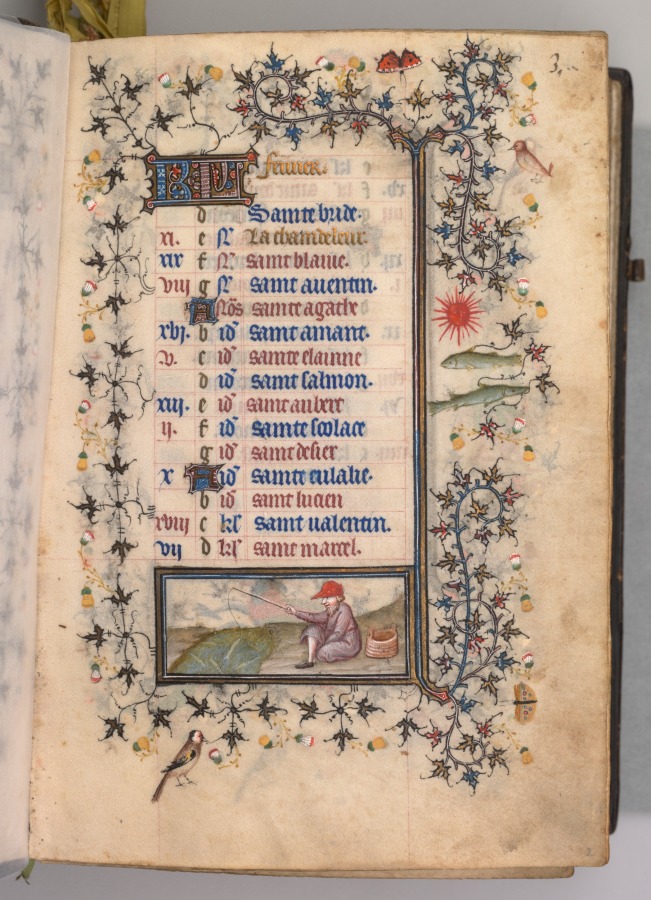 3.
KL feurier.
d Sainte bride.
xi. e La chandeleur.
xix f saint blaiue.
viii g saint auentin.
A Nõs sainte agathe
xvj. b id saint amant.
v. c id sainte elainne
d id saint salmon.
xiii. e id saint aubert
ij. f id sainte scolace
g id saint desier
x A id sainte eulalie.
b id saint lucien
xviii c kl saint ualentin.
vij d kl saint marcel.
2